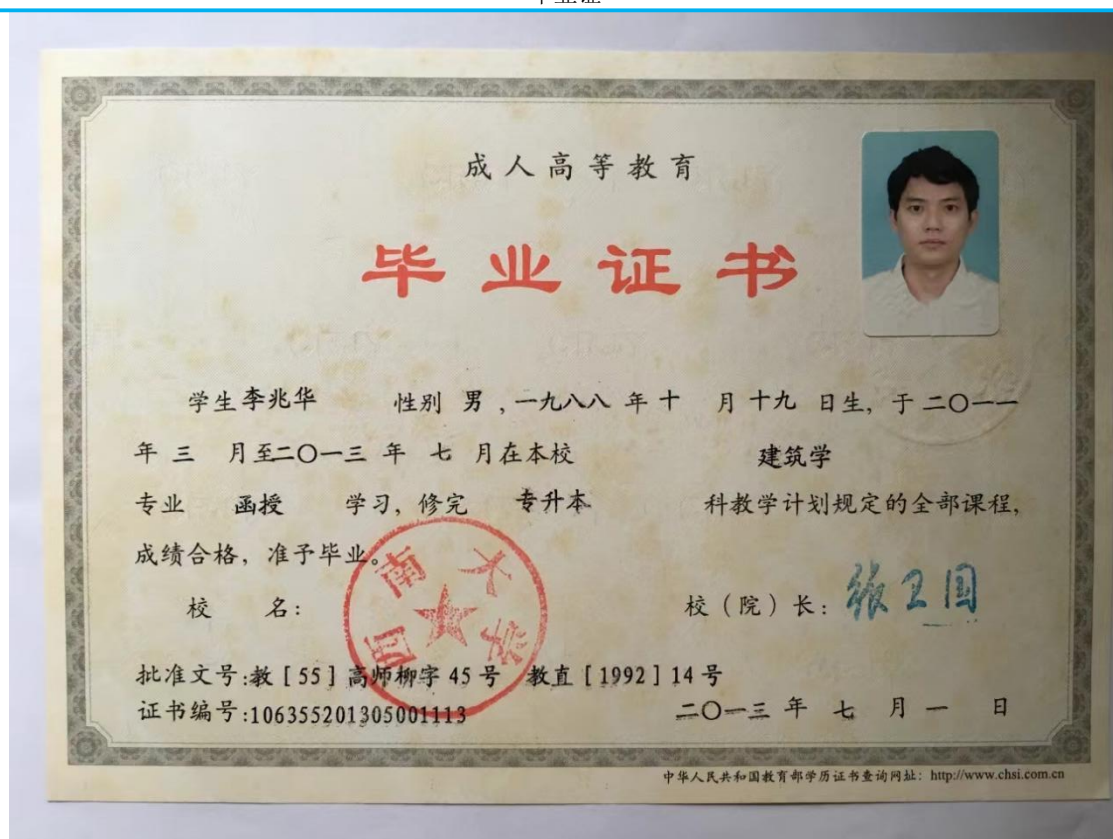 毕业证
成人高等教育
毕业证书
学生李兆华 性别 男 ,一九八八 年 十 月 十九 日生, 于 二〇一一
年 三 月至二〇一三 年 七 月在本校 建筑学
专业 函授 学习, 修完 专升本 科教学计划规定的全部课程,
成绩合格, 准予毕业。
西南大学
校 名: 校(院)长: 张卫国
批准文号:教[55]高师柳字 45 号 教直[1992]14 号
证书编号:106355201305001113 二〇一三 年 七 月 一 日
中华人民共和国教育部学历证书查询网址: http://www.chsi.com.cn